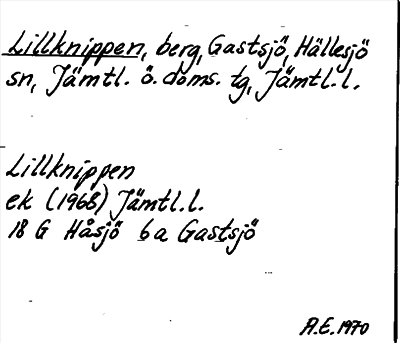 Lillknippen, berg, Gastsjö, Hällesjö
sn, Jämtl. ö. doms. tg, Jämtl.l.
Lillknippen
ek (1968) Jämtl.l.
18 G Håsjö 6a Gastsjö
A.E. 1970